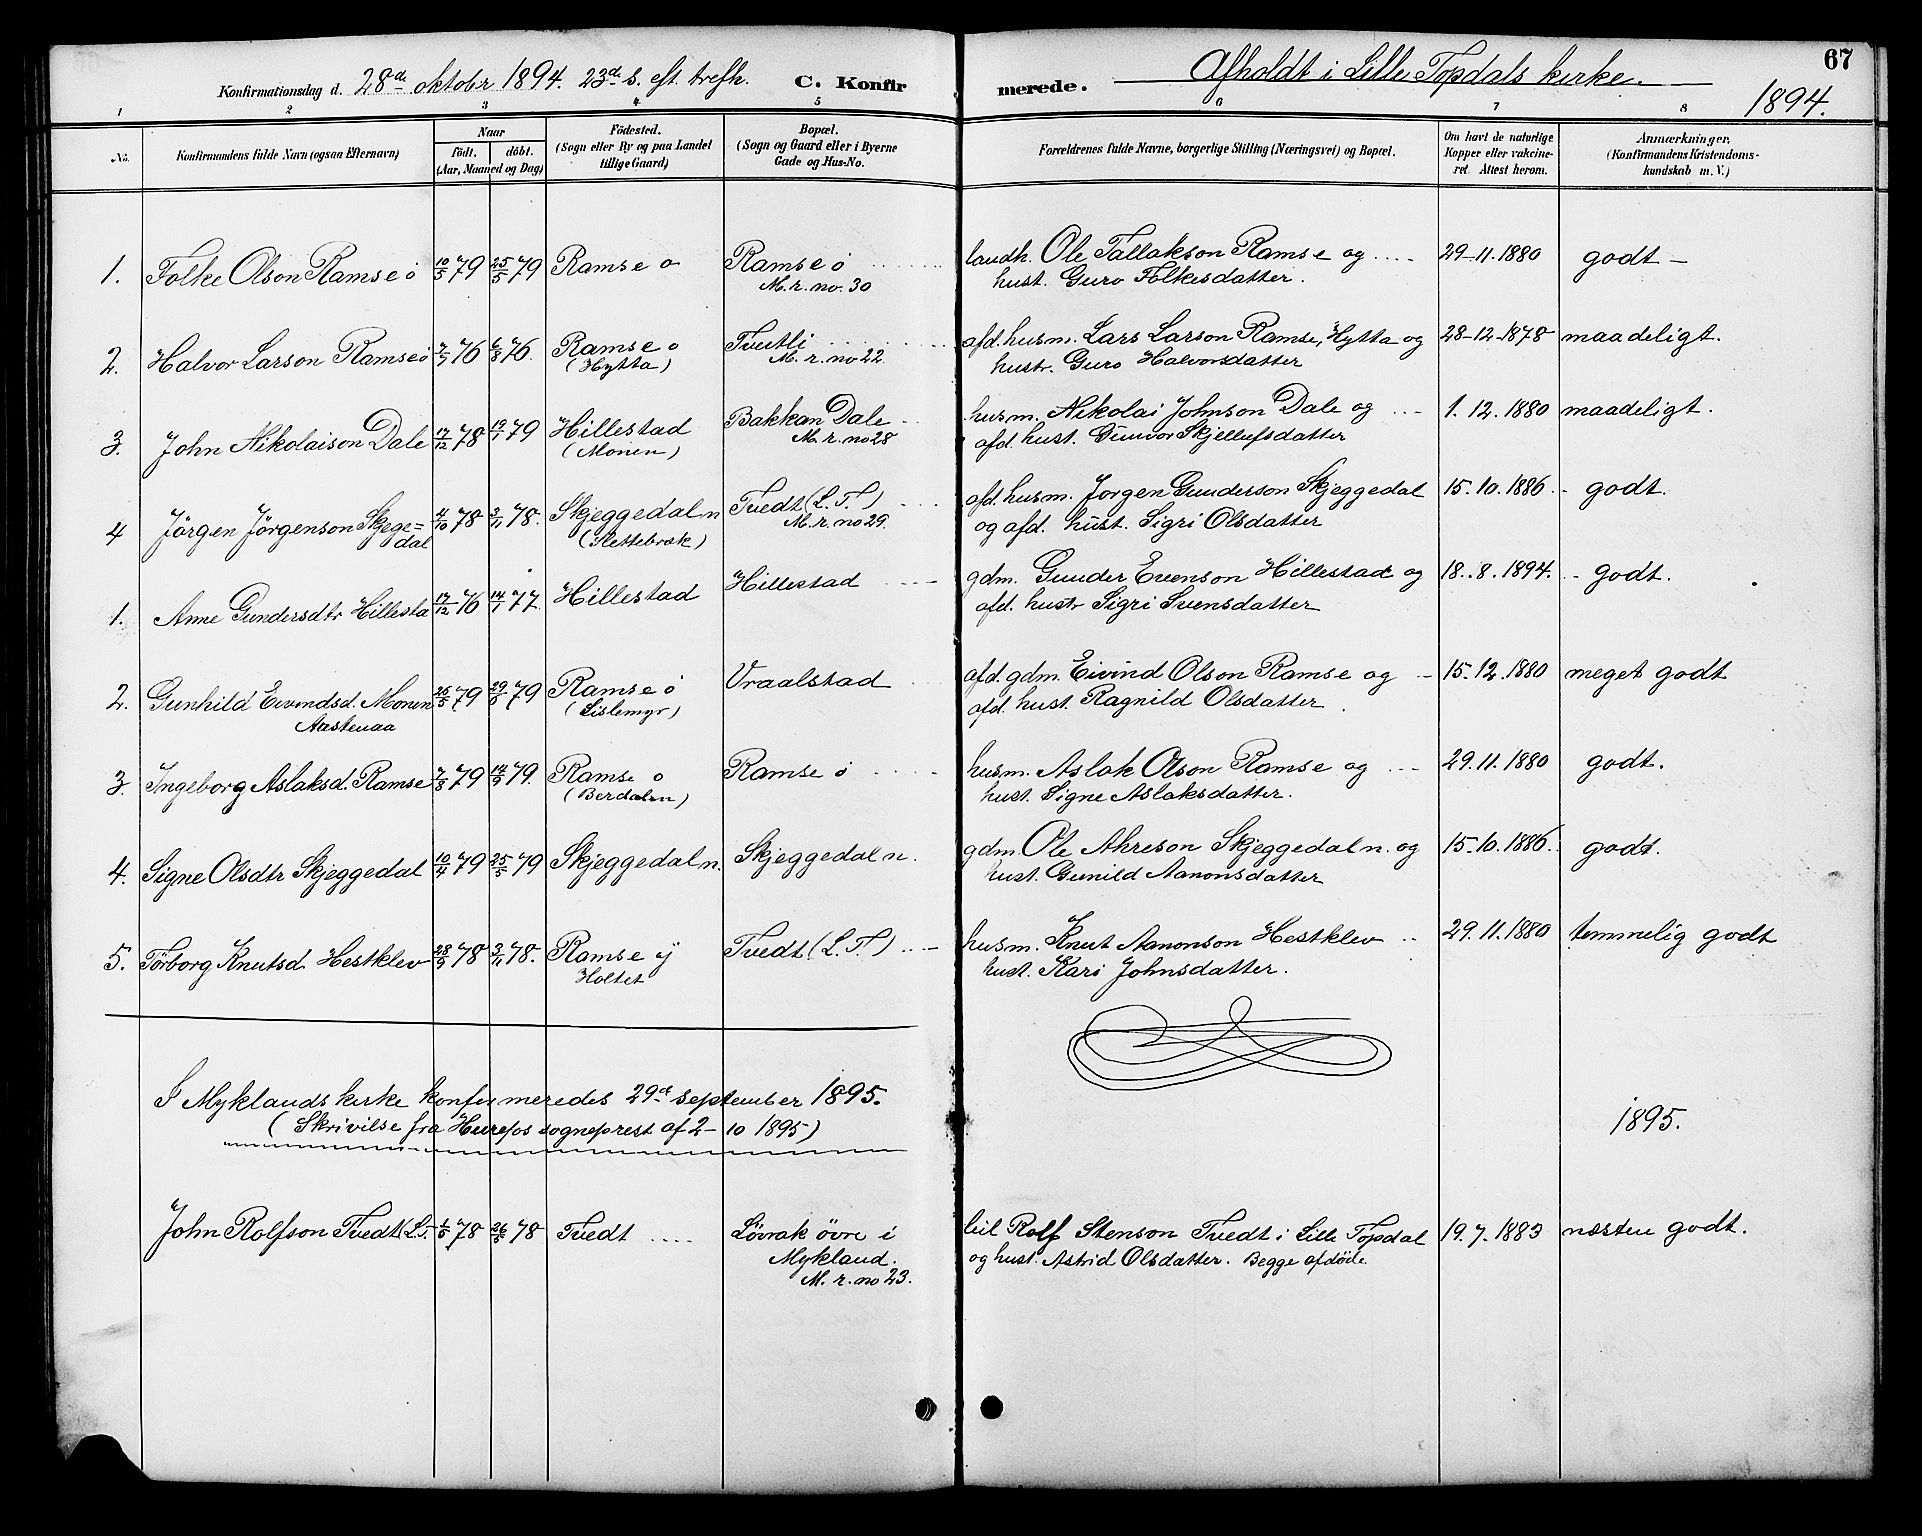 67
Konfirmationsdag d. 28de oktobr 1894. 23de s. eft. trefh. C. Konfirmerede. Afholdt i Lille Topdals kirke.
1894.
1 2 3 4 5 6 7 8
No. Konfirmandens fulde Navn (ogsaa Efternavn) Naar Födt. döbt. (Aar, Maaned og Dag) Födested. (Sogn eller By og paa Landet tillige Gaard) Bopæl. (Sogn og Gaard eller i Byerne Gade og Hus-No. Forældrenes fulde Navne, borgerlige Stilling (Næringsvei) og Bopæl. Om havt de naturlige Kopper eller vakcineret. Attest herom. Anmærkninger. (Konfirmandens Kristendomskundskab m. V.)
1. Folke Olson Ramse ö 10/5 79 25/5 79 Ramse ö Ramse ö laudh. Ole Tallakson Ramse og 29-11.1880 godt -
M. r. no. 30 hust. Guro Folkesdatter.
2. Halvor Larson Ramse ö 7/7 76 6/8 76. Ramse ö Tveitli afd. husm. Lars Larson Ramse, Hytta og 28-12-1878 maadeligt.
(Hytta) M. r. no 22 hustr. Guro Halvorsdatter
3. John Nikolaison Dale 17/12 78 19/1 79 Hillestad Bakkan Dale husm. Nikolai Johnson Dale og 1. 12. 1880 maadeligt.
(Monen) M. r. no 28 afd. hust. Gunvor Skjellufsdatter
4 Jörgen Jörgenson Skjege= 4/10 78 3/11 78. Skjeggedal n Tvedt (L. T.) afd. husm. Jorgen Gunderson Skjeggedal 15-10.1886. godt.
dal (Slettebræk) M. r. no 29. og afd. hust. Sigri Olsdatter
1. Anne Gundersdtr Hillesta 17/12 76 14/1 77. Hillestad Hillestad gdm. Gunder Evenson Hillestad og 18..8.1894. godt.
afd. hustr Sigri Svensdatter
2. Gunhild Eivindsd. Monen 25/5 79 29/6 79 Ramse ö Vraalstad afd. gdm. Eivind Olson Ramse og 15.12.1880 meget godt
Aastenaa (Lislemyr) afd. hust. Ragnild Olsdatter.
3. Ingeborg Aslaksd. Ramse 7/8 79 14/9 79. Ramse ö Ramse ö husm. Aslak Olson Ramse og 29.11.1880 godt.
(Berdalen) hust. Signe Aslaksdatter.
4. Signe Olsdtr Skjeggedal 10/4 79 25/5 79 Skjeggedal n. Skjeggedal n. gdm. Ole Ahreson Skjeggedal n. og 15-10.1886. godt.
hust. Gunild Aanonsdatter
5. Törborg Knutsd. Hestklev 28/9 78 3/11 78. Ramse y Tvedt (L. T.) husm. Knut Aanonson Hestklev 29.11.1880 temmelig godt
Holtet hust. Kari Johnsdatter.
I Myklands kirke konfirmeredes 29de september 1895.
(Skrivilse fra Herefos sogneprest af 2-10 1895) 1895.
John Rolfson Tvedt (L.T. 1/5 78 26/5 78 Tvedt Lövrak övre i leil Rolf Stenson Tvedt i Lille Topdal 19.7.1883 næsten godt.
Mykland. og hust. Astrid Olsdatter. Begge afdöde.
M. r. no 23.